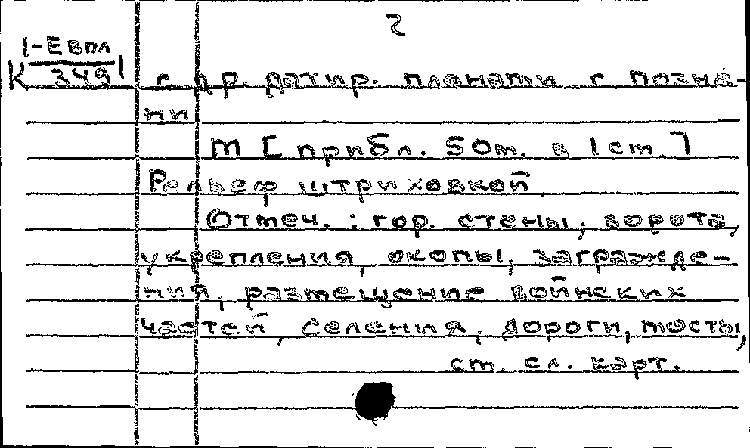 2
1-Евпл
К 349
с др. датир. планами г. Позна-
ни
М [прибл. 50 м. в 1 см]
Рельеф штриховкой
Отмеч.: гор. стены, ворота,
укрепления, окопы, загражде-
ния, размещение войнских
частей, селения, дороги, мосты,
см. сл. карт.